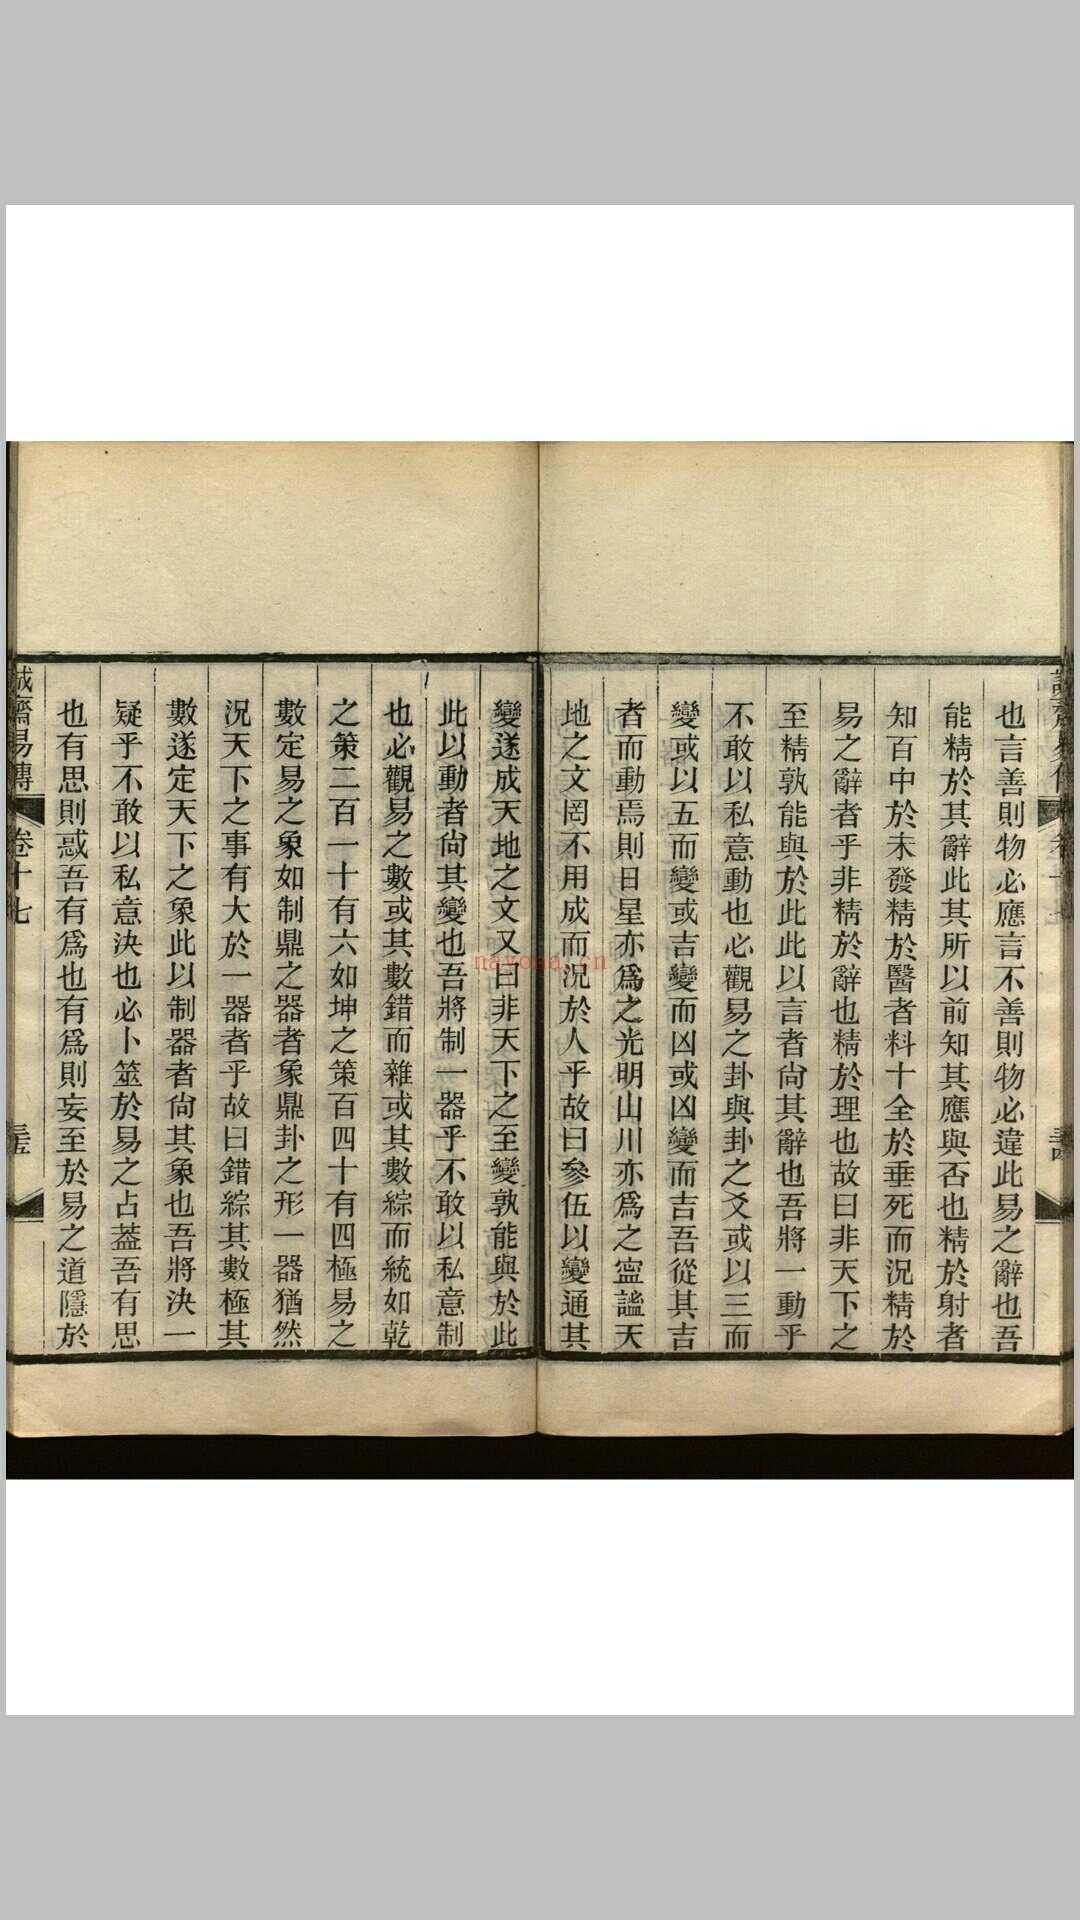 也言善則物必應言不善則物必違此易之辭也吾
能精於其辭此其所以前知其應與否也精於射者
知百中於未發精於醫者料十全於垂死而況精於
易之辭者乎非精於辭也精於理也故曰非天下之
至精孰能與於此此以言者尙其辭也吾將一動乎
不敢以私意動也必觀易之卦與卦之爻或以三而
變或以五而變或吉變而凶或凶變而吉吾從其吉
者而動焉則日星亦爲之光明山川亦爲之寍謐天
地之文罔不用成而況於人乎故曰參伍以變通其
變遂成天地之文又曰非天下之至變孰能與於此
此以動者尙其變也吾將制一器乎不敢以私意制
也必觀易之數或其數錯而雜或其數綜而統如乾
之策二百一十有六如坤之策百四十有四極易之
數定易之象如制鼎之器者象鼎卦之形一器猶然
況天下之事有大於一器者乎故曰錯綜其數極其
數遂定天下之象此以制器者尙其象也吾將決一
疑乎不敢以私意決也必卜筮於易之占葢吾有思
也有思則惑吾有爲也有爲則妄至於易之道隱於
誠齋易傳 卷十七
nayona.cn